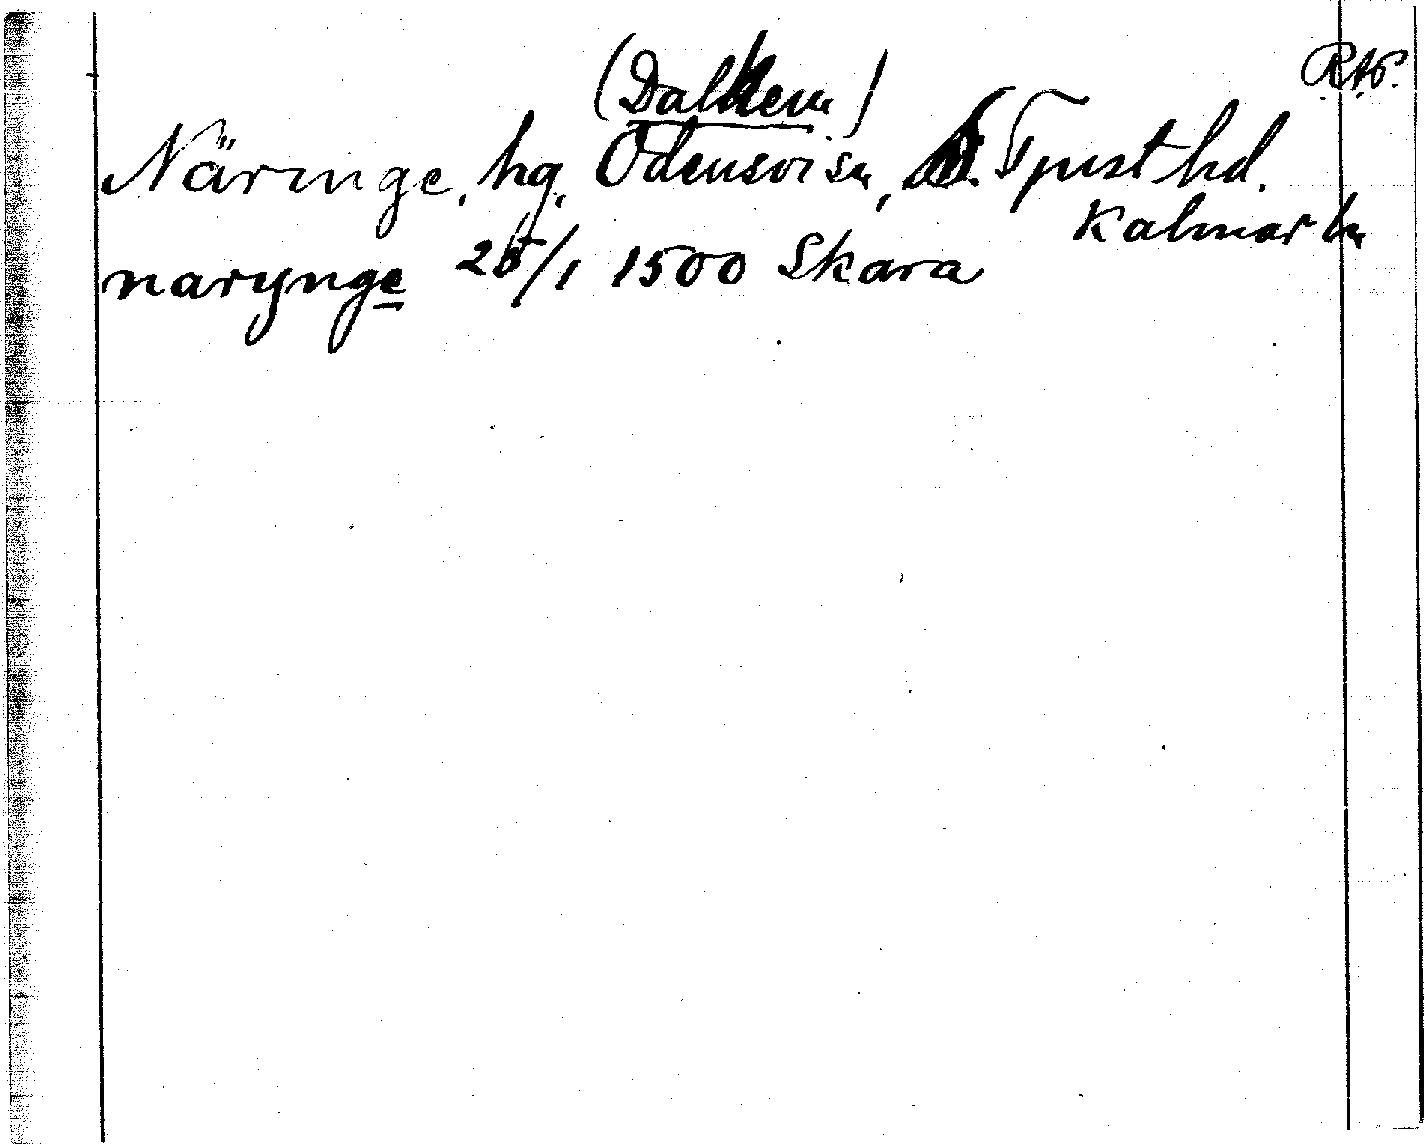 R.A.P.
(Dalhem)
Näringe, hg, Odensvi sn, S. Tjust hd.
Kalmar ln
narynge 25/1 1500 Skara